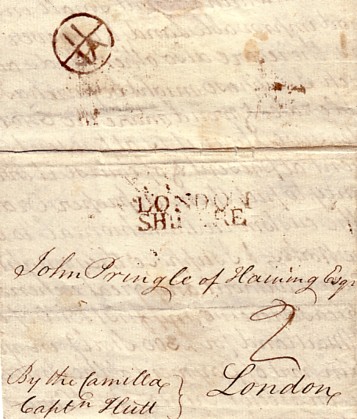 LONDON
SHI RE
John Pringle of Haining Esqr
2
By the Camilla
Captn Hutt
London